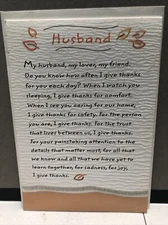 Husband
My husband, my lover, my friend.
Do you know how often I give thanks
for you each day? When I watch you
sleeping, I give thanks for comfort.
When I see you caring for our home,
I give thanks for safety. for the person
you are, I give thanks. for the trust
that lives between us, I give thanks.
for your painstaking attention to the
details that matter most, for all that
we know and all that we have yet to
learn together, for sadness, for joy,
I give thanks.